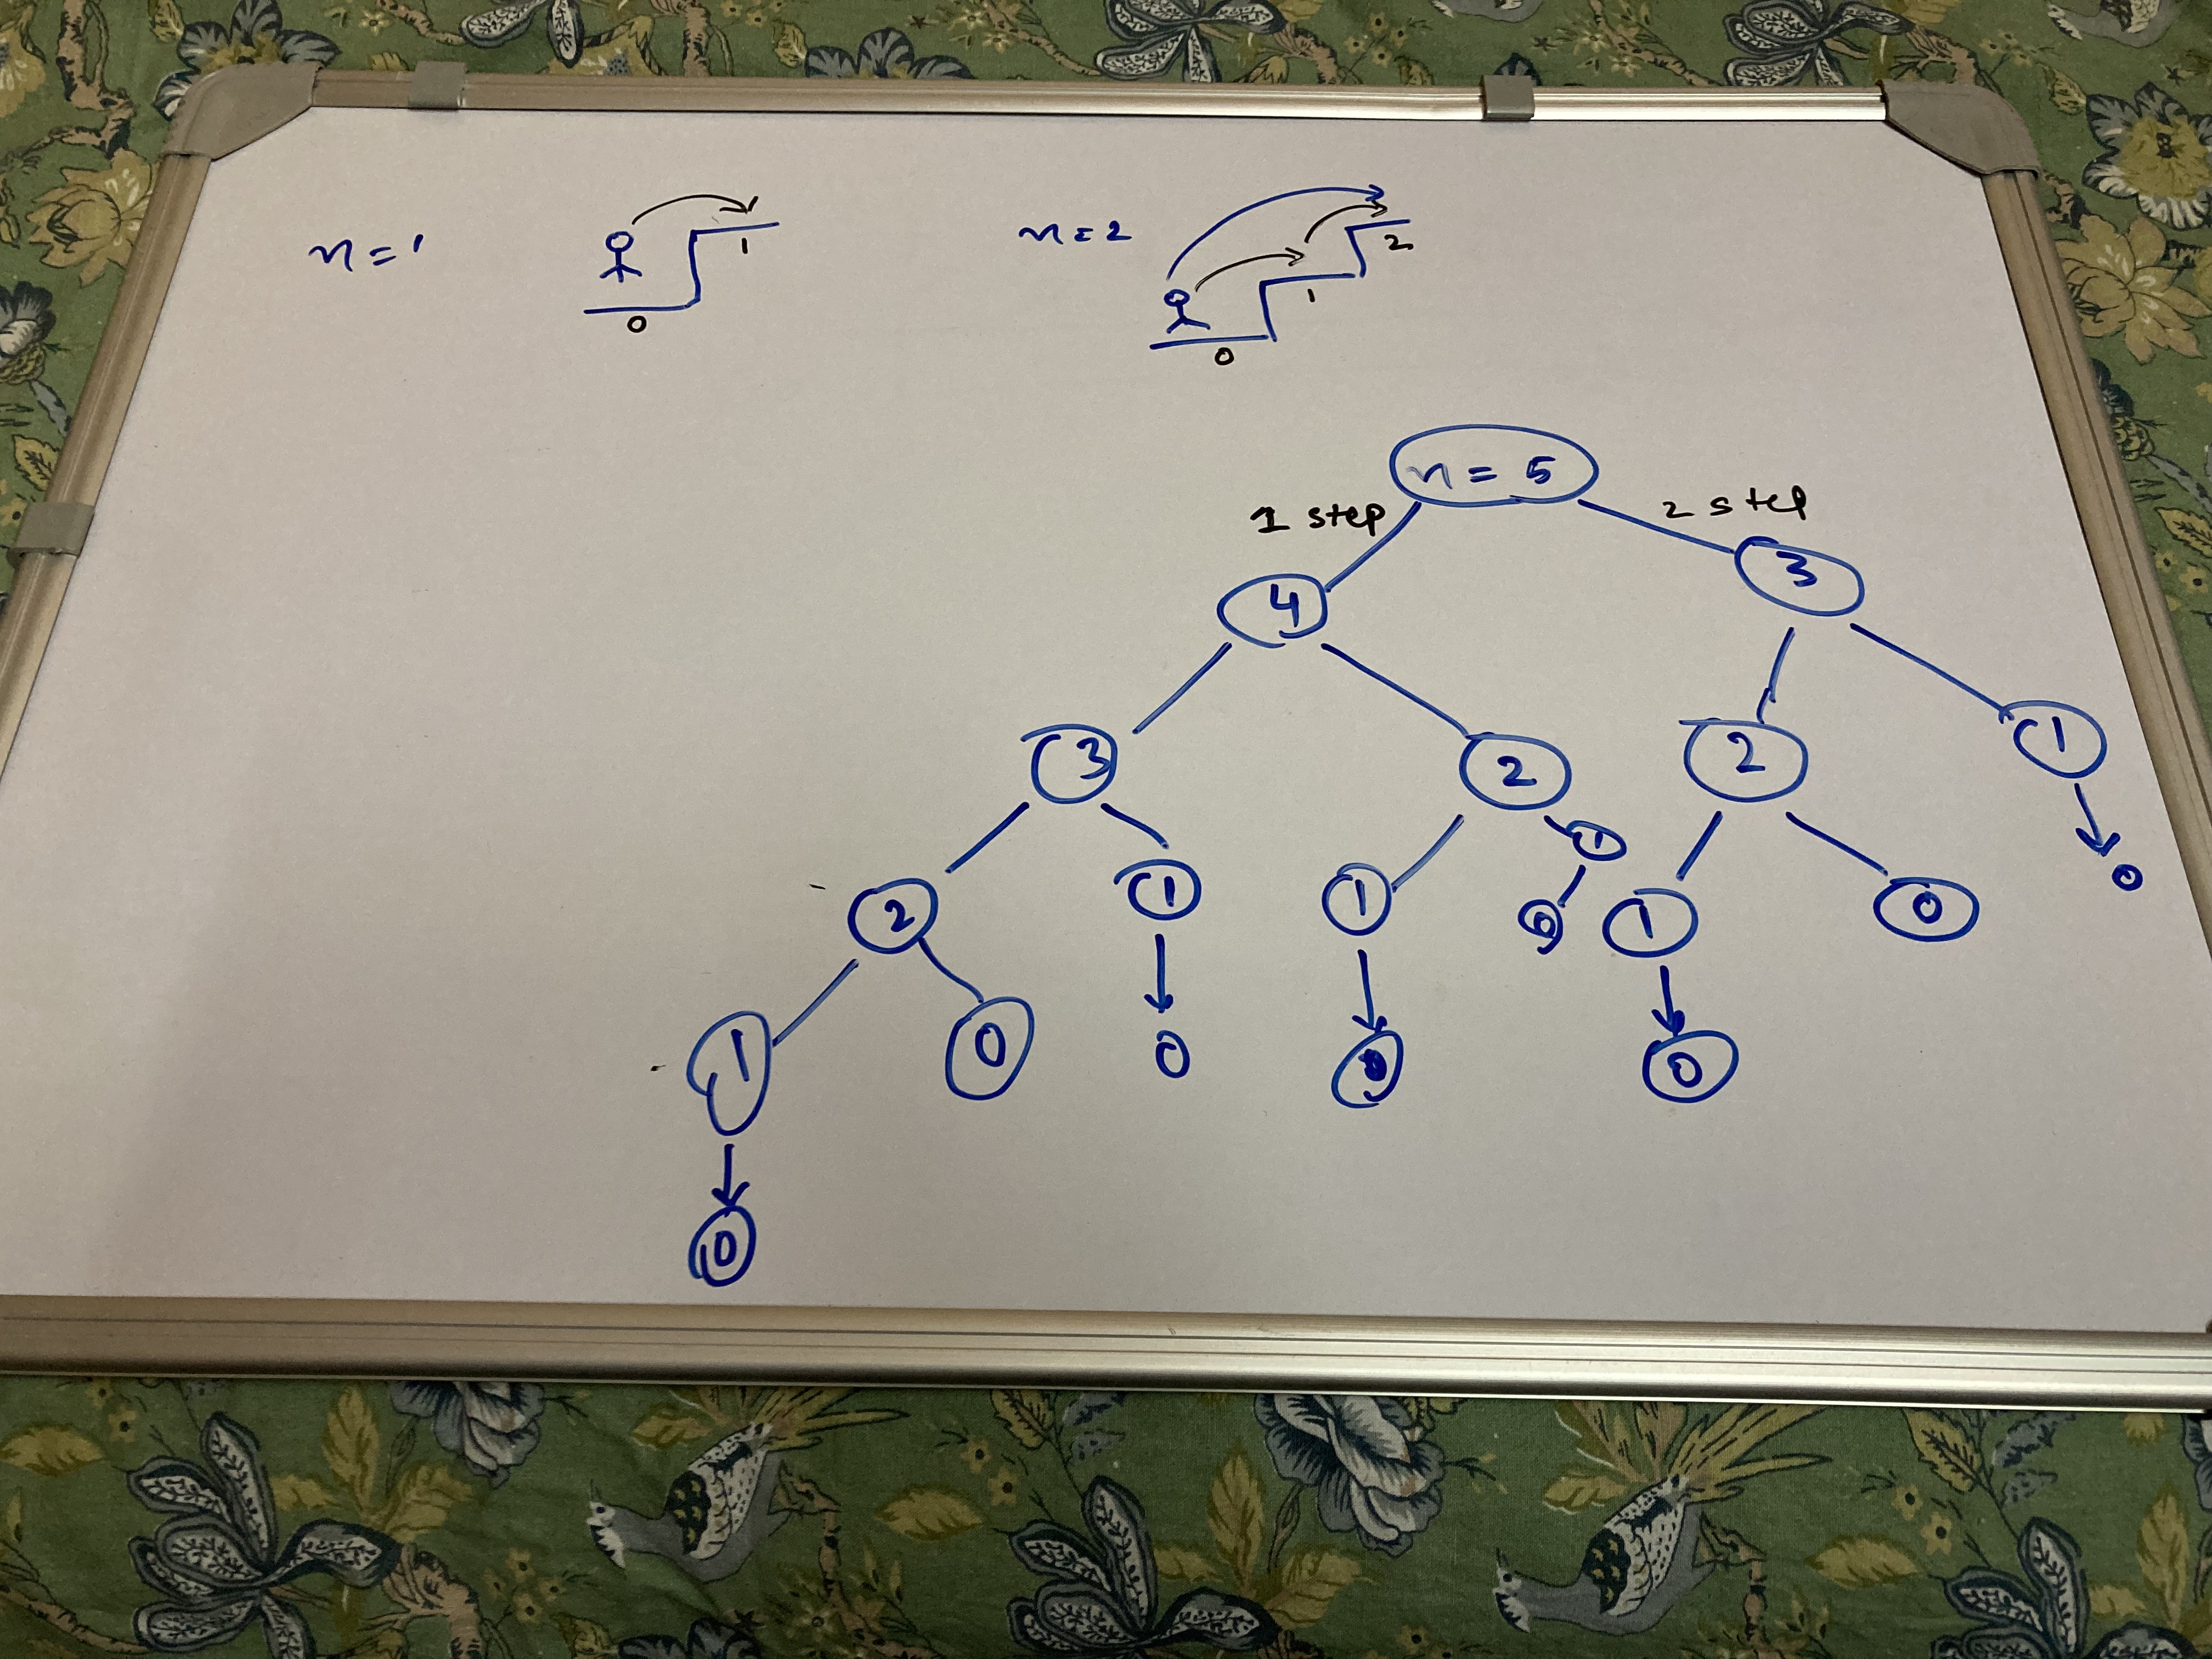 n = 1
1
0
n = 2
2
1
0
n = 5
1 step
2 step
4
3
3
2
2
1
1
2
1
1
0
1
0
0
1
0
0
0
0
0